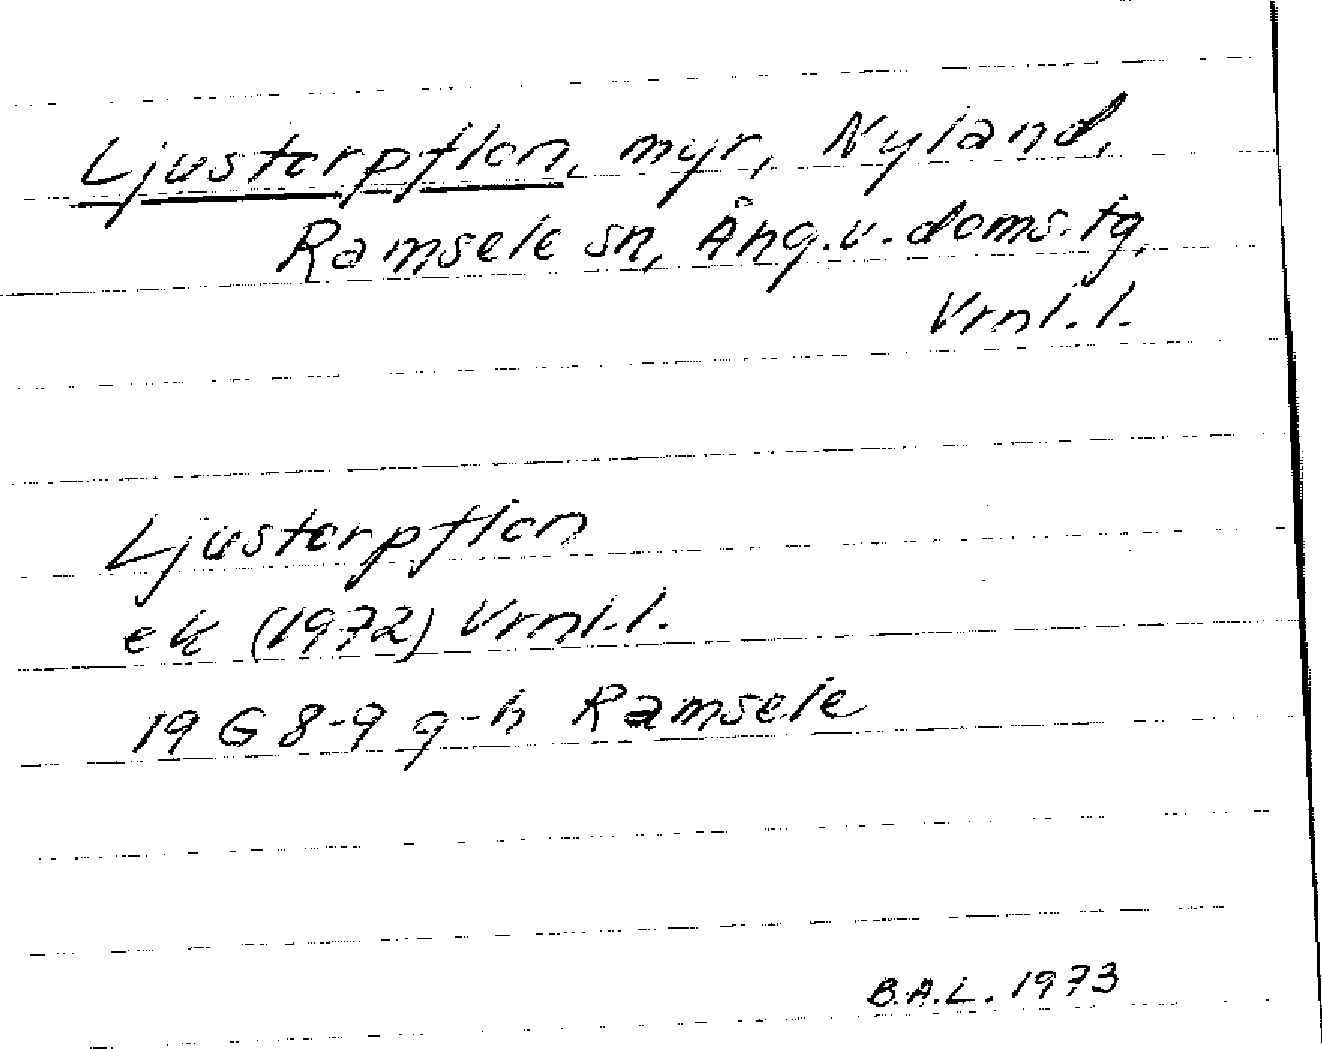 Ljustorpflon, myr, Nyland,
Ramsele sn, Ång.v. doms.tg,
Vrnl.l.
Ljustorpflon
ek (1972) Vrnl.l.
19 G 8-9 g-h Ramsele
B.A.L. 1973